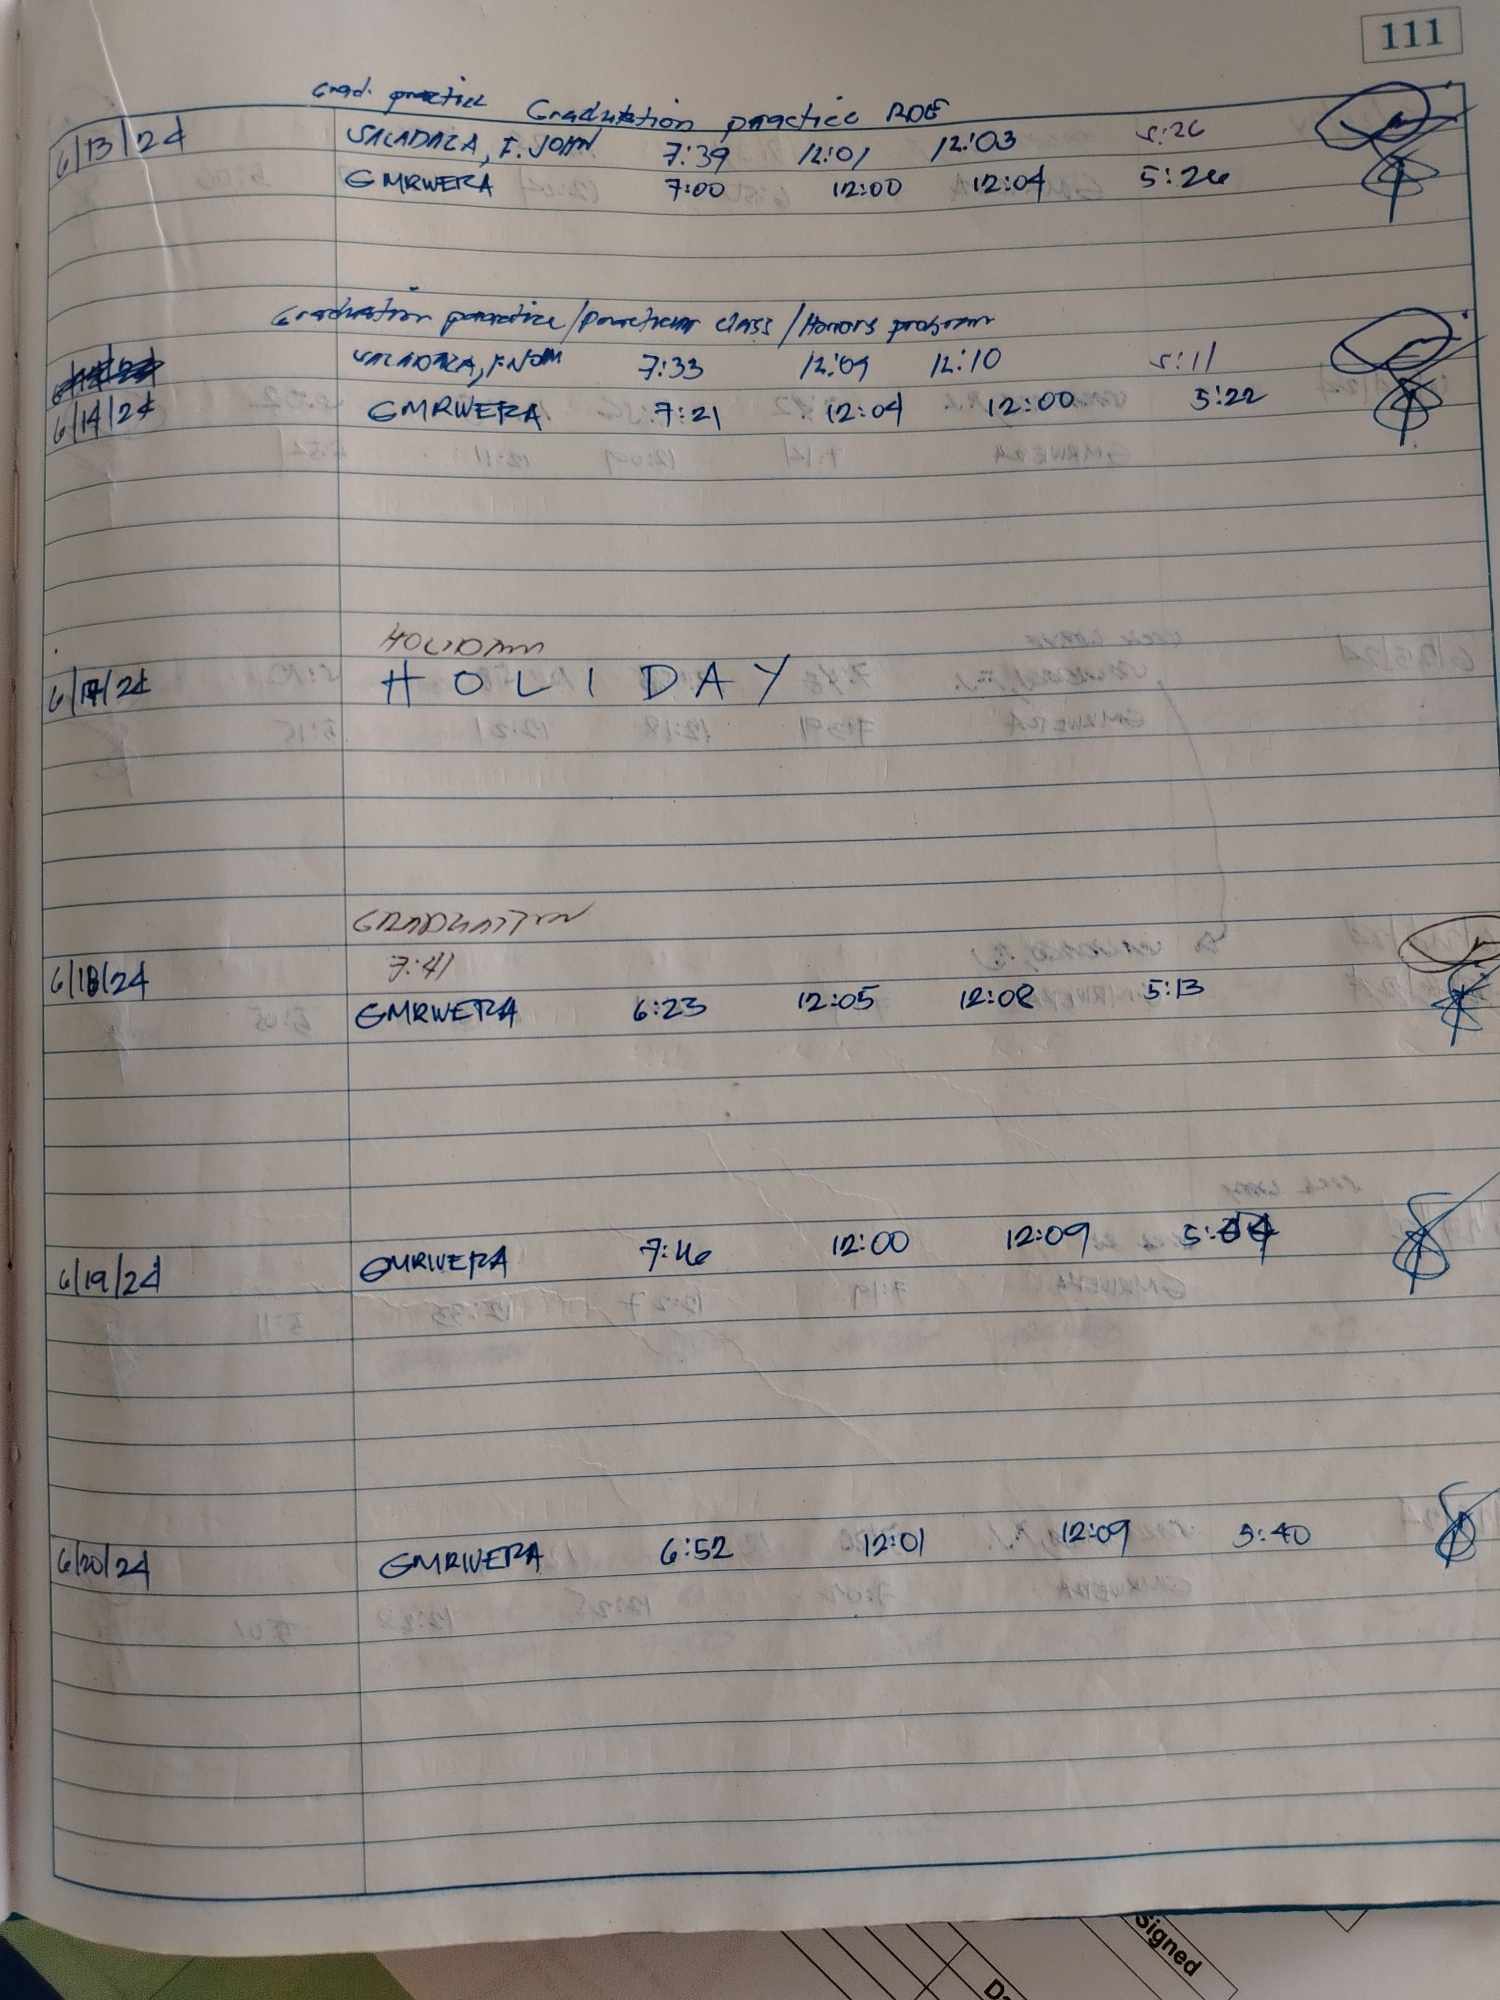 111
Grad. practice Graduation practice RDE
6/13/24 SALADAZA, F. JOHN 7:39 12:01 12:03 5:26
GMRIVERA 7:00 12:00 12:04 5:26
Graduation practice/Practicum class/Honors program
SALADAZA, 7:33 12:09 12:10 5:11
6/14/24 GMRIVERA 7:21 12:04 12:00 5:22
HOLIDAY
6/17/24 HOLIDAY
GRADUATION
6/18/24 7:41
GMRIVERA 6:23 12:05 12:08 5:13
6/19/24 GMRIVERA 7:46 12:00 12:09 5:44
6/20/24 GMRIVERA 6:52 12:01 12:09 5:40
Signed